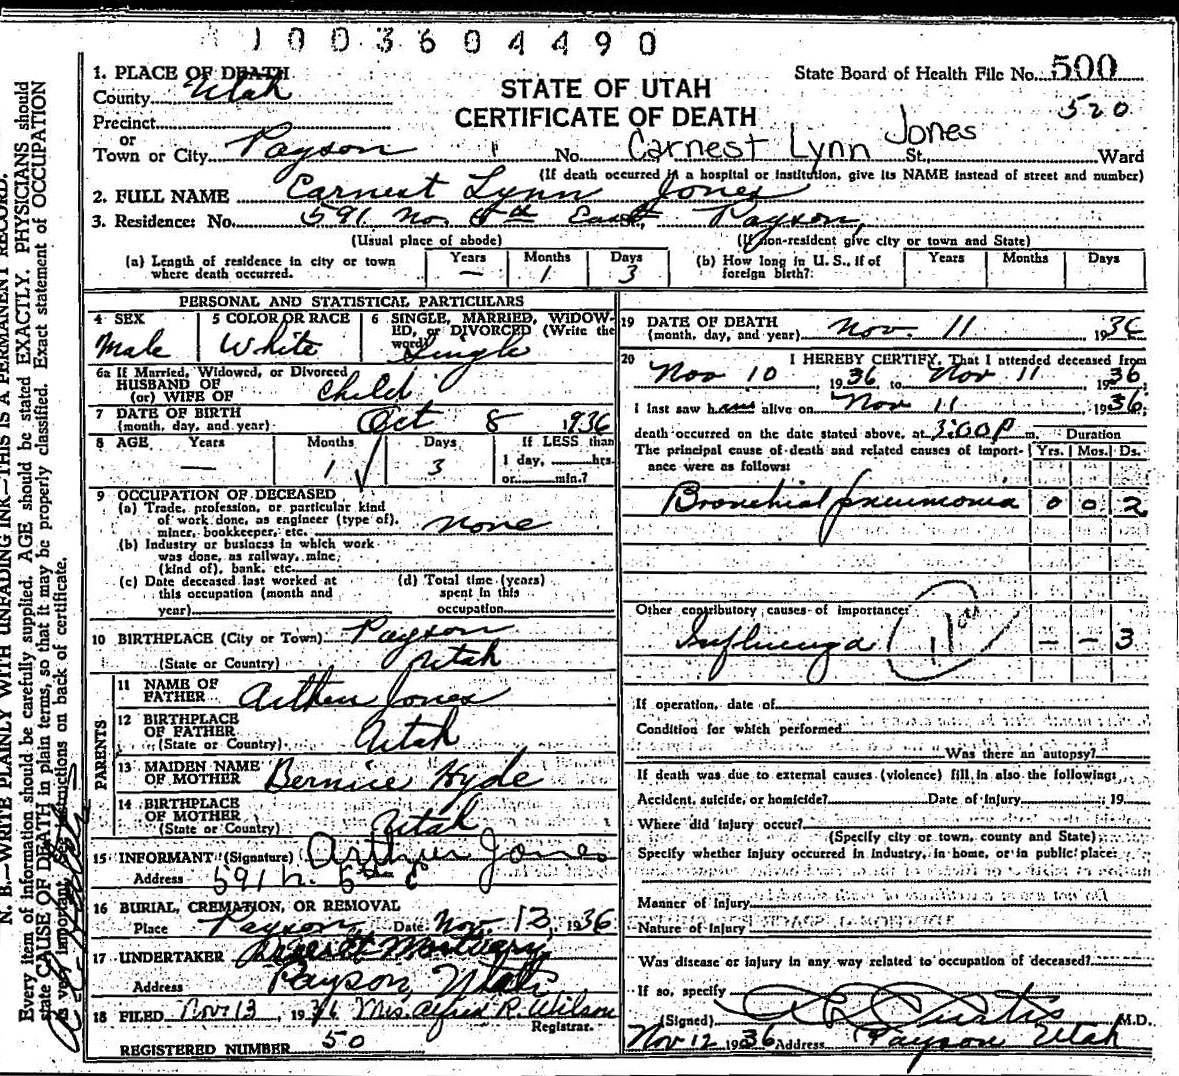 1003604490
1. PLACE OF DEATH
County Utah
Precinct
or
Town or City Payson
STATE OF UTAH
CERTIFICATE OF DEATH
State Board of Health File No. 500
520
No. Carnest Lynn Jones St., Ward
(If death occurred in a hospital or institution, give its NAME instead of street and number)
2. FULL NAME Carnest Lynn Jones
3. Residence: No. 591 No. 5th East, Payson,
(Usual place of abode) (If non-resident give city or town and State)
(a) Length of residence in city or town where death occurred. Years — Months 1 Days 3
(b) How long in U. S., if of foreign birth? Years Months Days
PERSONAL AND STATISTICAL PARTICULARS
4 SEX Male
5 COLOR OR RACE White
6 SINGLE, MARRIED, WIDOWED, or DIVORCED (Write the word) Single
6a If Married, Widowed, or Divorced
HUSBAND OF
(or) WIFE OF child
7 DATE OF BIRTH
(month, day, and year) Oct 8 1936
8 AGE Years — Months 1 Days 3 If LESS than
1 day, hrs.
or min.?
9 OCCUPATION OF DECEASED
(a) Trade, profession, or particular kind
of work done, as engineer (type of),
miner, bookkeeper, etc. none
(b) Industry or business in which work
was done, as railway, mine,
(kind of), bank, etc.
(c) Date deceased last worked at
this occupation (month and
year)
(d) Total time (years)
spent in this
occupation
10 BIRTHPLACE (City or Town) Payson
(State or Country) Utah
PARENTS
11 NAME OF
FATHER Arthur Jones
12 BIRTHPLACE
OF FATHER
(State or Country) Utah
13 MAIDEN NAME
OF MOTHER Bernice Hyde
14 BIRTHPLACE
OF MOTHER
(State or Country) Utah
15 INFORMANT (Signature) Arthur Jones
Address 591 N. 5th E
16 BURIAL, CREMATION, OR REMOVAL
Place Payson Date Nov. 13, 1936
17 UNDERTAKER Deseret Mortuary
Address Payson, Utah
18 FILED Nov 13, 1936 Mrs. Alfred R. Wilson
Registrar.
REGISTERED NUMBER 50
19 DATE OF DEATH
(month, day, and year) Nov. 11 1936
20 I HEREBY CERTIFY, That I attended deceased from
Nov 10, 1936 to Nov 11, 1936
I last saw him alive on Nov 11, 1936;
death occurred on the date stated above, at 3:00 P m. Duration
The principal cause of death and related causes of importance were as follows: Yrs. Mos. Ds.
Bronchial pneumonia 0 0 2
Other contributory causes of importance:
Influenza 11a — — 3
If operation, date of
Condition for which performed
Was there an autopsy?
If death was due to external causes (violence) fill in also the following:
Accident, suicide, or homicide? Date of injury , 19
Where did injury occur?
(Specify city or town, county and State)
Specify whether injury occurred in industry, in home, or in public place:
Manner of injury
Nature of injury
Was disease or injury in any way related to occupation of deceased?
If so, specify
(Signed) Curtis M.D.
Nov 12 1936 Address Payson Utah
N. B.—WRITE PLAINLY WITH UNFADING INK—THIS IS A PERMANENT RECORD.
Every item of information should be carefully supplied. AGE should be stated EXACTLY. PHYSICIANS should
state CAUSE OF DEATH in plain terms, so that it may be properly classified. Exact statement of OCCUPATION
is very important. See instructions on back of certificate.